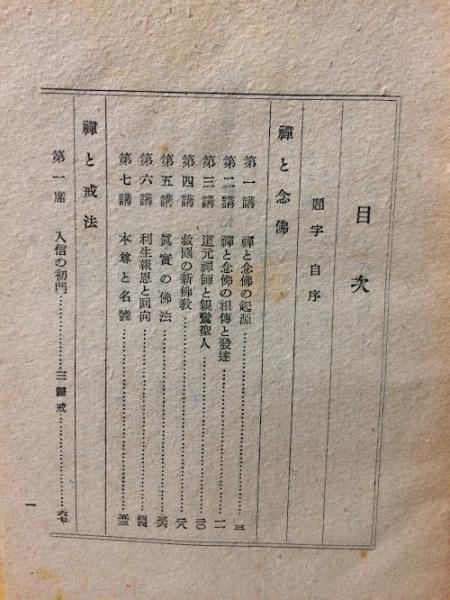 目次
題字 自序
禪と念佛
第一講 禪と念佛の起源…………三
第二講 禪と念佛の相傳と發達…………一一
第三講 道元禪師と親鸞聖人…………二〇
第四講 救國の新佛敎…………二八
第五講 眞實の佛法…………三六
第六講 利生報恩と回向…………四四
第七講 本尊と名號…………五三
禪と戒法
第一席 入信の初門…………三歸戒…………六七
一